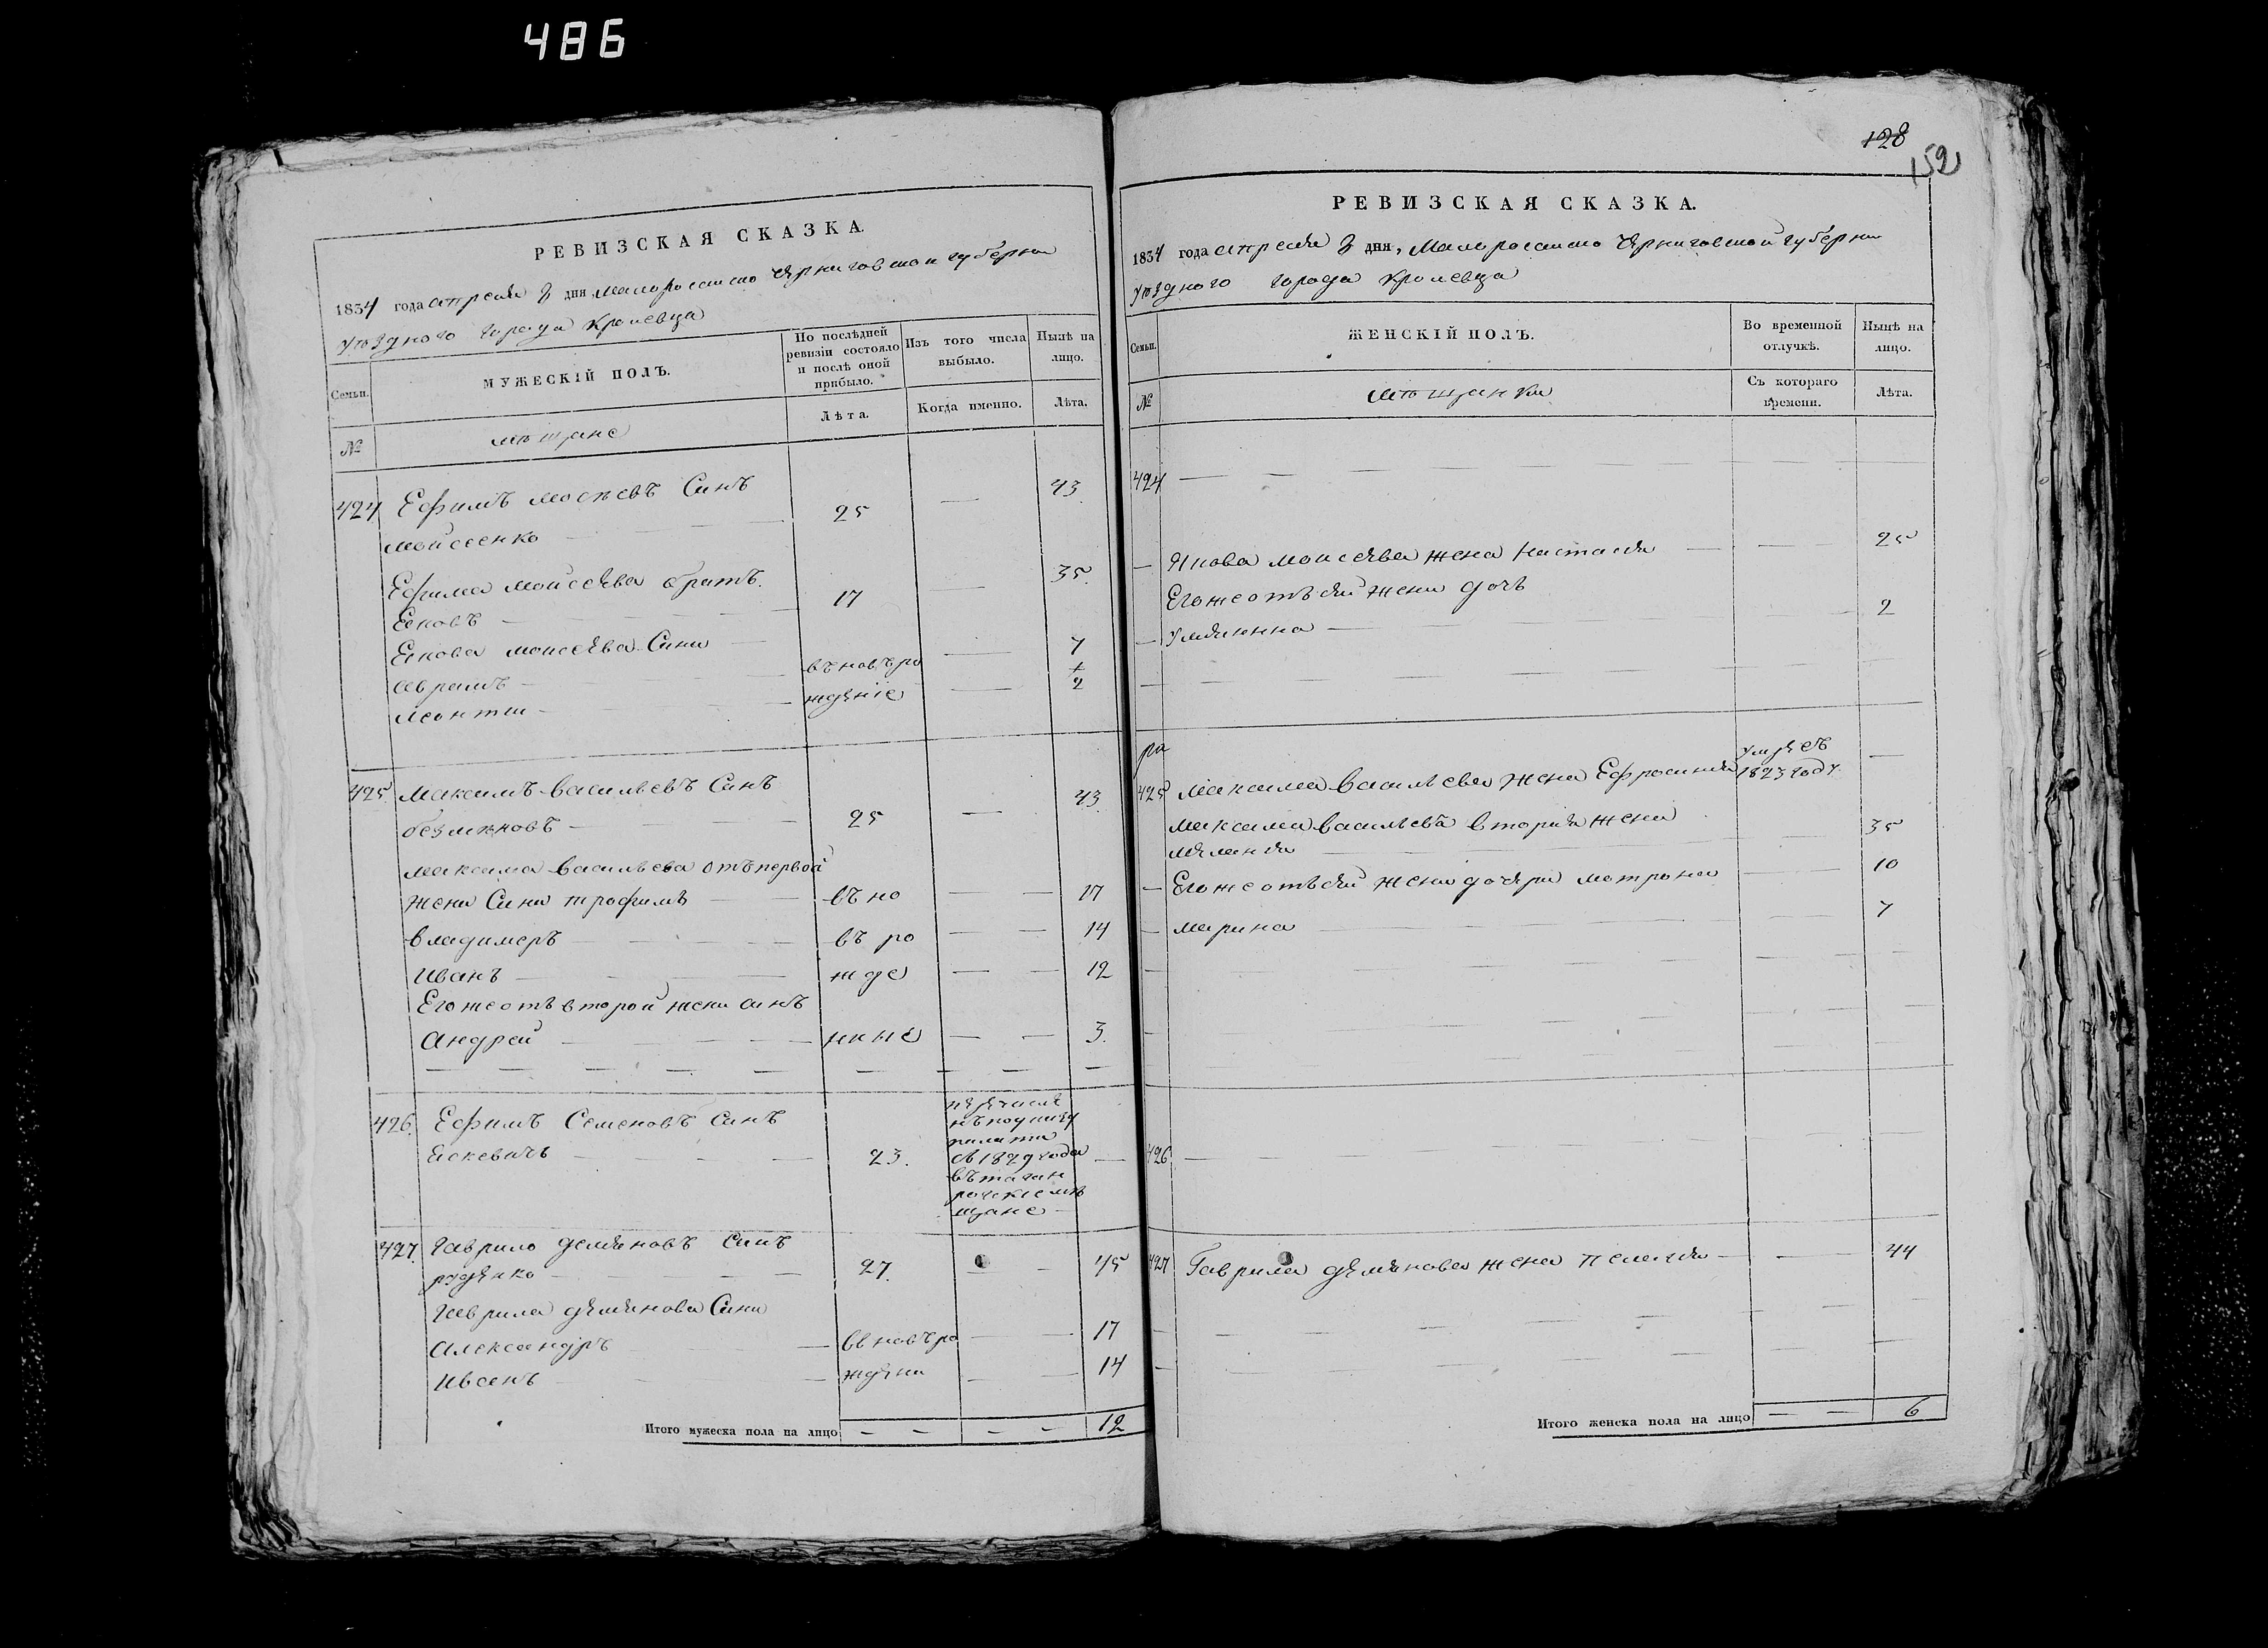 486
РЕВИЗСКАЯ СКАЗКА.
1834 года апреля дня, Малоросийско Черниговской губерни
уездного города Кролевца
Семьи.
МУЖЕСКІЙ ПОЛЪ.
По послѣдней ревизіи состояло и послѣ оной прибыло.
Изъ того числа выбыло.
Нынѣ на лицо.
№
мещане
Лѣта.
Когда именно.
Лѣта.
424 Ефимъ Мосѣевъ Синъ — 43
Мойсеенко — 25
Ефима Моисеева братъ — 35.
Еяковъ — 17
Еякова Моисеева Сини — 7
Аврамъ — въ новъ ро
Леонти — жденіе — 2
425. Максимъ Васильевъ Синъ — 43.
25
Максима Васильева отъ первой
жени Сини Трофимъ — въ но — 17
Владимеръ — въ ро — 14
Иванъ — жде — 12
Его же отъ второй жени синъ
Андрей — нные — 3.
426. Ефимъ Семеновъ Синъ
23.
съ 1829 года
въ таган
рогские мѣ
щане
427. Гаврило Демяновъ Синъ
Руденко — 27. — 45
Гаврила Демянова Сини
Александръ — въ новъ ро — 17
Иванъ — ждени — 14
Итого мужеска пола на лицо — 12
128
152
РЕВИЗСКАЯ СКАЗКА.
1834 года апреля дня, Малоросийско Черниговской губерни
уездного города Кролевца
Семьи.
ЖЕНСКІЙ ПОЛЪ.
Во временной отлучкѣ.
Нынѣ на лицо.
№
мещанки
Съ котораго времени.
Лѣта.
424
Якова Моисеева жена Настасия — 25
Его же отъ сей жени дочь
Улиянна — 2
425 Максима Васильева жена Ефросиния — умре въ 1823 году.
Максима Васильева вторая жена — 35
Мелания
Его же отъ сей жени дочери Мотрона — 10
Марина — 7
426
427 Гаврила Демянова жена Пелагия — 44
Итого женска пола на лицо — 6